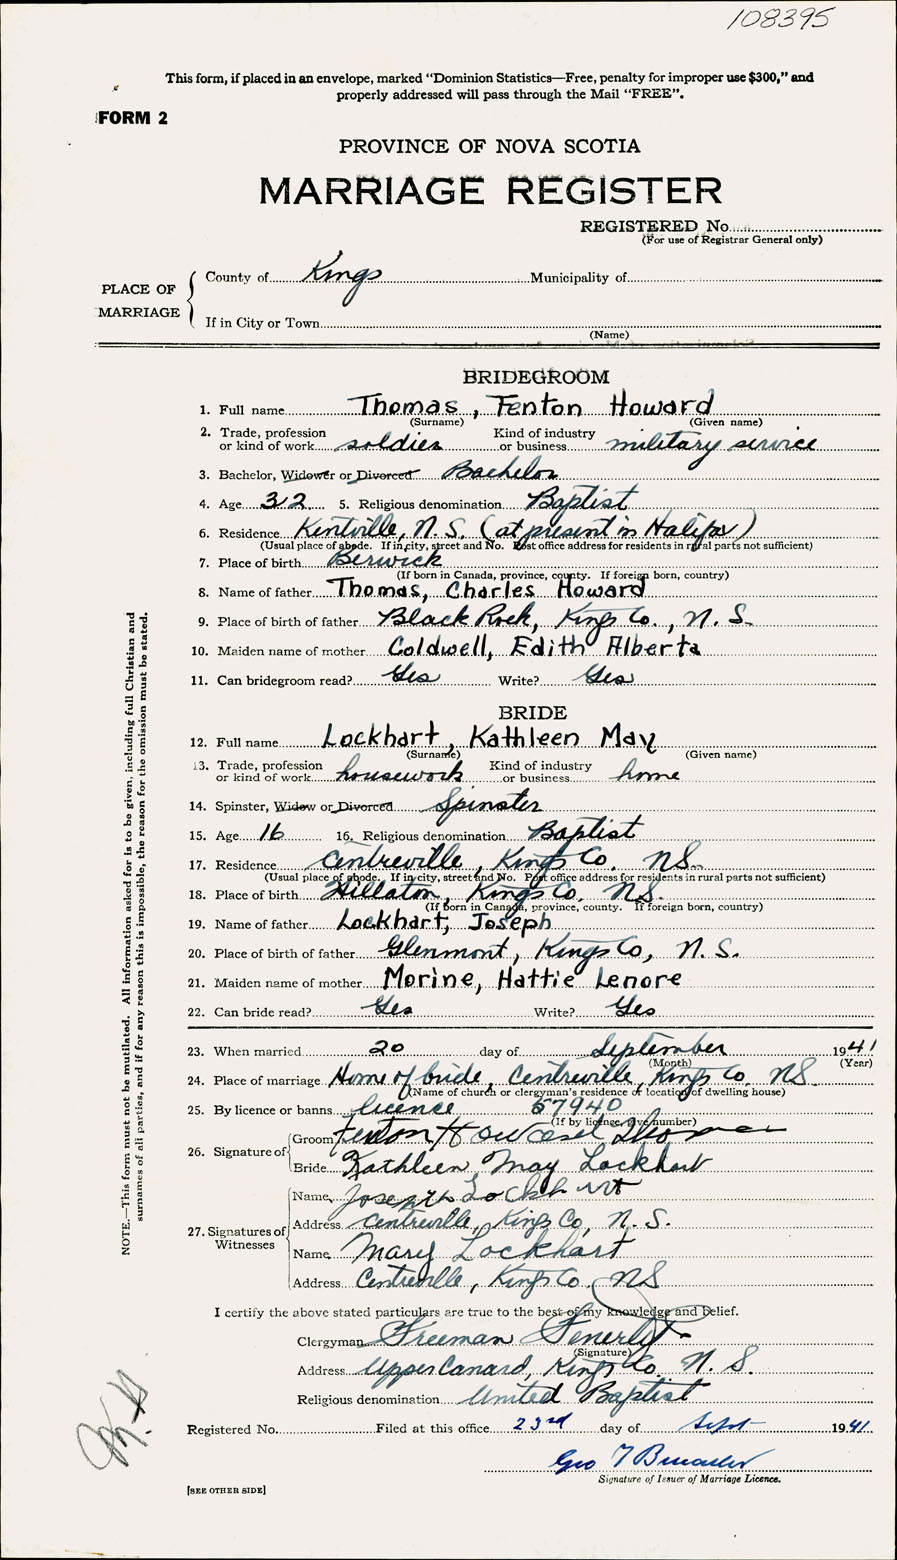 108395
This form, if placed in an envelope, marked "Dominion Statistics—Free, penalty for improper use $300," and
properly addressed will pass through the Mail "FREE".
FORM 2
PROVINCE OF NOVA SCOTIA
MARRIAGE REGISTER
REGISTERED No.
(For use of Registrar General only)
PLACE OF MARRIAGE
County of Kings Municipality of
If in City or Town
(Name)
BRIDEGROOM
1. Full name Thomas, Fenton Howard
(Surname) (Given name)
2. Trade, profession or kind of work soldier Kind of industry or business military service
3. Bachelor, Widower or Divorced Bachelor
4. Age 32 5. Religious denomination Baptist
6. Residence Kentville, N.S. (at present in Halifax)
(Usual place of abode. If in city, street and No. Post office address for residents in rural parts not sufficient)
7. Place of birth Berwick
(If born in Canada, province, county. If foreign born, country)
8. Name of father Thomas, Charles Howard
9. Place of birth of father Black Rock, Kings Co., N. S.
10. Maiden name of mother Coldwell, Edith Alberta
11. Can bridegroom read? Yes Write? Yes
BRIDE
12. Full name Lockhart, Kathleen May
(Surname) (Given name)
13. Trade, profession or kind of work housework Kind of industry or business home
14. Spinster, Widow or Divorced Spinster
15. Age 16 16. Religious denomination Baptist
17. Residence Centreville, Kings Co. NS.
(Usual place of abode. If in city, street and No. Post office address for residents in rural parts not sufficient)
18. Place of birth Hillaton, Kings Co. NS.
(If born in Canada, province, county. If foreign born, country)
19. Name of father Lockhart, Joseph
20. Place of birth of father Glenmont, Kings Co, N. S.
21. Maiden name of mother Morine, Hattie Lenore
22. Can bride read? Yes Write? Yes
23. When married 20 day of September 1941
(Month) (Year)
24. Place of marriage Home of bride, Centreville, Kings Co. NS.
(Name of church or clergyman's residence or location of dwelling house)
25. By licence or banns licence 57940
(If by license, give number)
26. Signature of
Groom Fenton Howard Thomas
Bride Kathleen May Lockhart
27. Signatures of Witnesses
Name Joseph Lockhart
Address Centreville, Kings Co, N. S.
Name Mary Lockhart
Address Centreville, Kings Co, NS
I certify the above stated particulars are true to the best of my knowledge and belief.
Clergyman Freeman Fenerty
(Signature)
Address Upper Canard, Kings Co. N. S.
Religious denomination United Baptist
Registered No. Filed at this office 23rd day of Sept 1941
Geo
Signature of Issuer of Marriage Licence.
[SEE OTHER SIDE]
NOTE.—This form must not be mutilated. All information asked for is to be given, including full Christian and
surnames of all parties, and if for any reason this is impossible, the reason for the omission must be stated.